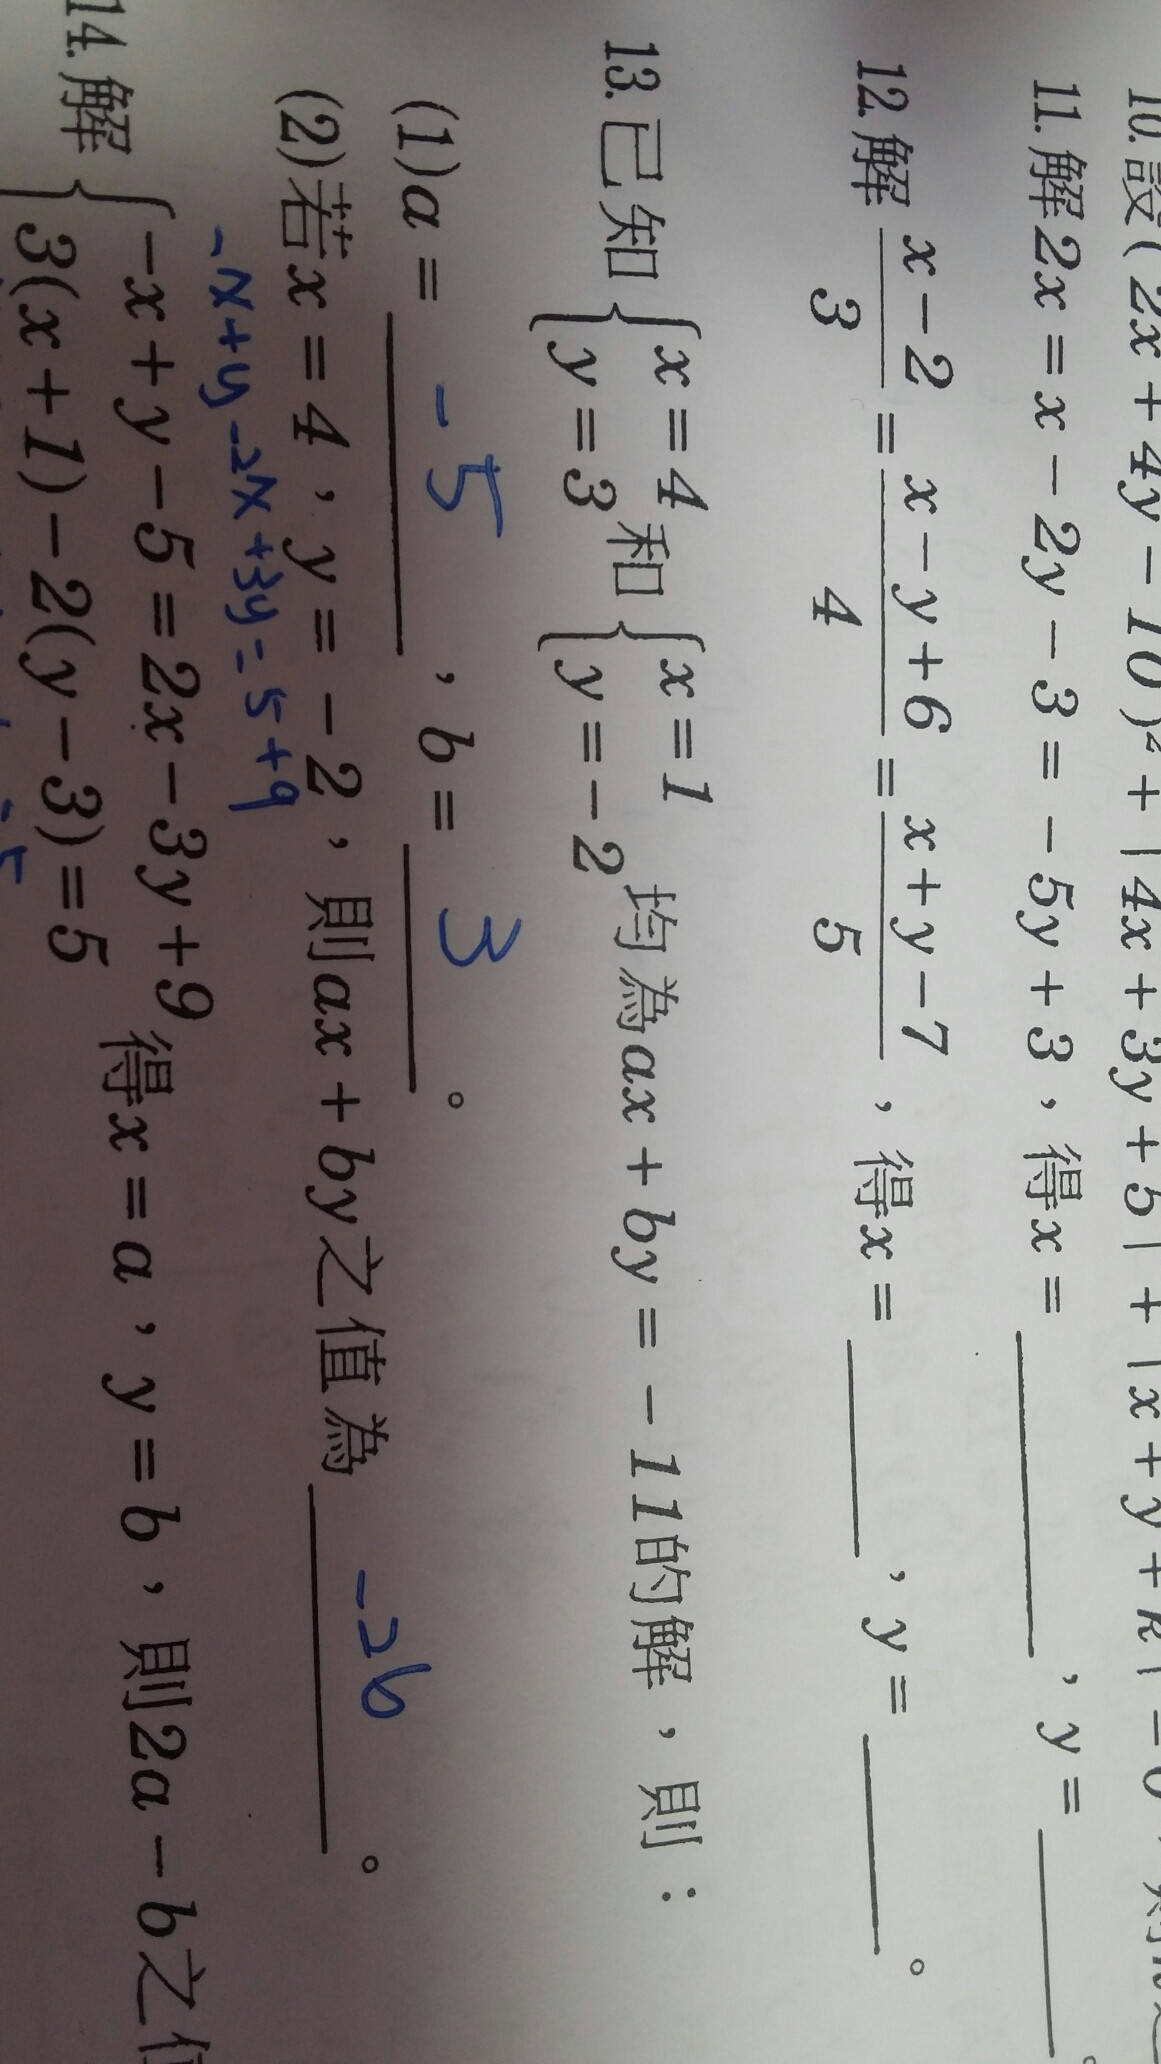 10.設(2x+4y-10)²+|4x+3y+5|+|x+y+k|=0，則
11.解2x=x-2y-3=-5y+3，得x=＿＿＿，y=＿＿＿。
12.解 (x-2)/3 = (x-y+6)/4 = (x+y-7)/5，得x=＿＿＿，y=＿＿＿。
13.已知{x=4 y=3 和{x=1 y=-2 均為ax+by=-11的解，則：
(1)a= -5，b= 3。
(2)若x=4，y=-2，則ax+by之值為 -26。
-x+y-2x+3y=5+9
14.解{-x+y-5=2x-3y+9 得x=a，y=b，則2a-b之值
3(x+1)-2(y-3)=5